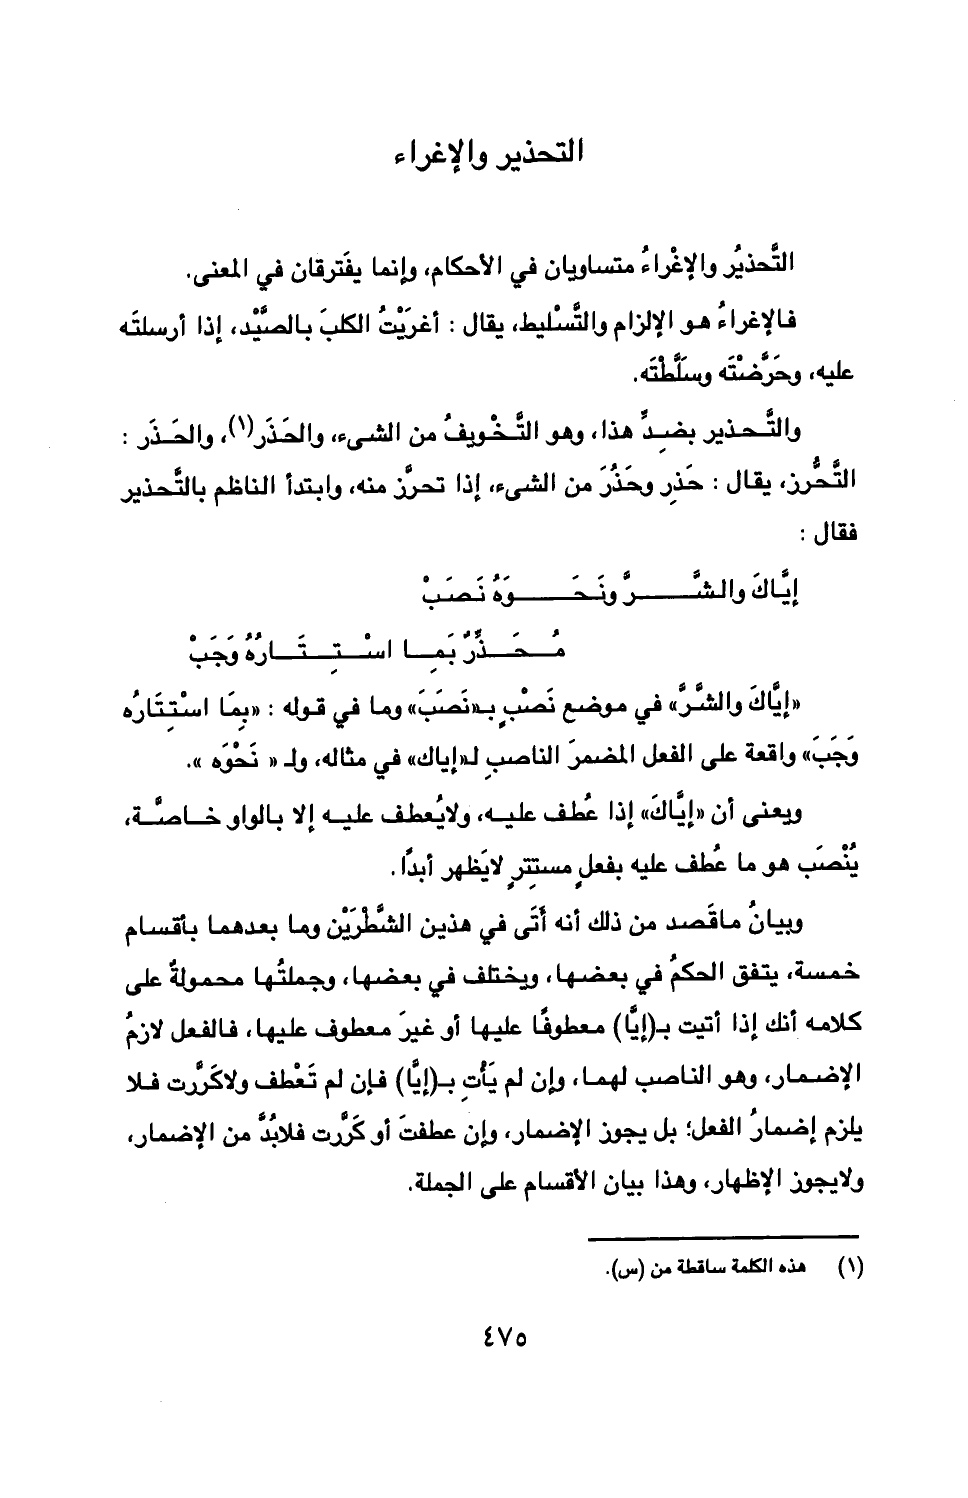 التحذير والإغراء
التَّحذيرُ والإغْراءُ متساويان في الأحكام، وإنما يفَترقان في المعنى.
فالإغراءُ هو الإلزام والتَّسْليط، يقال : أغريْتُ الكلبَ بالصَّيْد، إذا أرسلتَه
عليه، وحَرَّضْتَه وسلَّطْتَه.
والتَّحذير بضِدِّ هذا، وهو التَّخْويفُ من الشىء، والحَذَر(١)، والحَذَر :
التَّحُّرز، يقال : حَذرِ وحَذُرَ من الشىء، إذا تحرَّز منه، وابتدأ الناظم بالتَّحذير
فقال :
إيَّاكَ والشَّـــرَّ ونَحَـــوَهُ نَصَبْ
مُـحَـذِّرٌ بَمِـا اسْـتِـتَـارُهُ وَجَبْ
«إيَّاكَ والشَّرَّ» في موضع نَصْبٍ بـ«نَصَبَ» وما في قوله : «بِمَا اسْتِتَارُه
وَجَبَ» واقعة على الفعل المضمرَ الناصبِ لـ«إياك» في مثاله، ولـ « نَحْوَه ».
ويعنى أن «إيَّاكَ» إذا عُطف عليه، ولايُعطف عليه إلا بالواو خاصَّة،
يُنْصَب هو ما عُطف عليه بفعلٍ مستترٍ لايَظهر أبدًا.
وبيانُ ماقَصد من ذلك أنه أَتَى في هذين الشَّطْرَيْن وما بعدهما بأقسام
خمسة، يتفق الحكمُ في بعضها، ويختلف في بعضها، وجملتُها محمولةٌ على
كلامه أنك إذا أتيت بـ(إيَّا) معطوفًا عليها أو غيرَ معطوف عليها، فالفعل لازمُ
الإضمار، وهو الناصب لهما، وإن لم يَأتِ بـ(إيَّا) فإن لم تَعْطف ولاكَرَّرت فلا
يلزم إضمارُ الفعل؛ بل يجوز الإضمار، وإن عطفتَ أو كَرَّرت فلابُدَّ من الإضمار،
ولايجوز الإظهار، وهذا بيان الأقسام على الجملة.
(١) هذه الكلمة ساقطة من (س).
٤٧٥